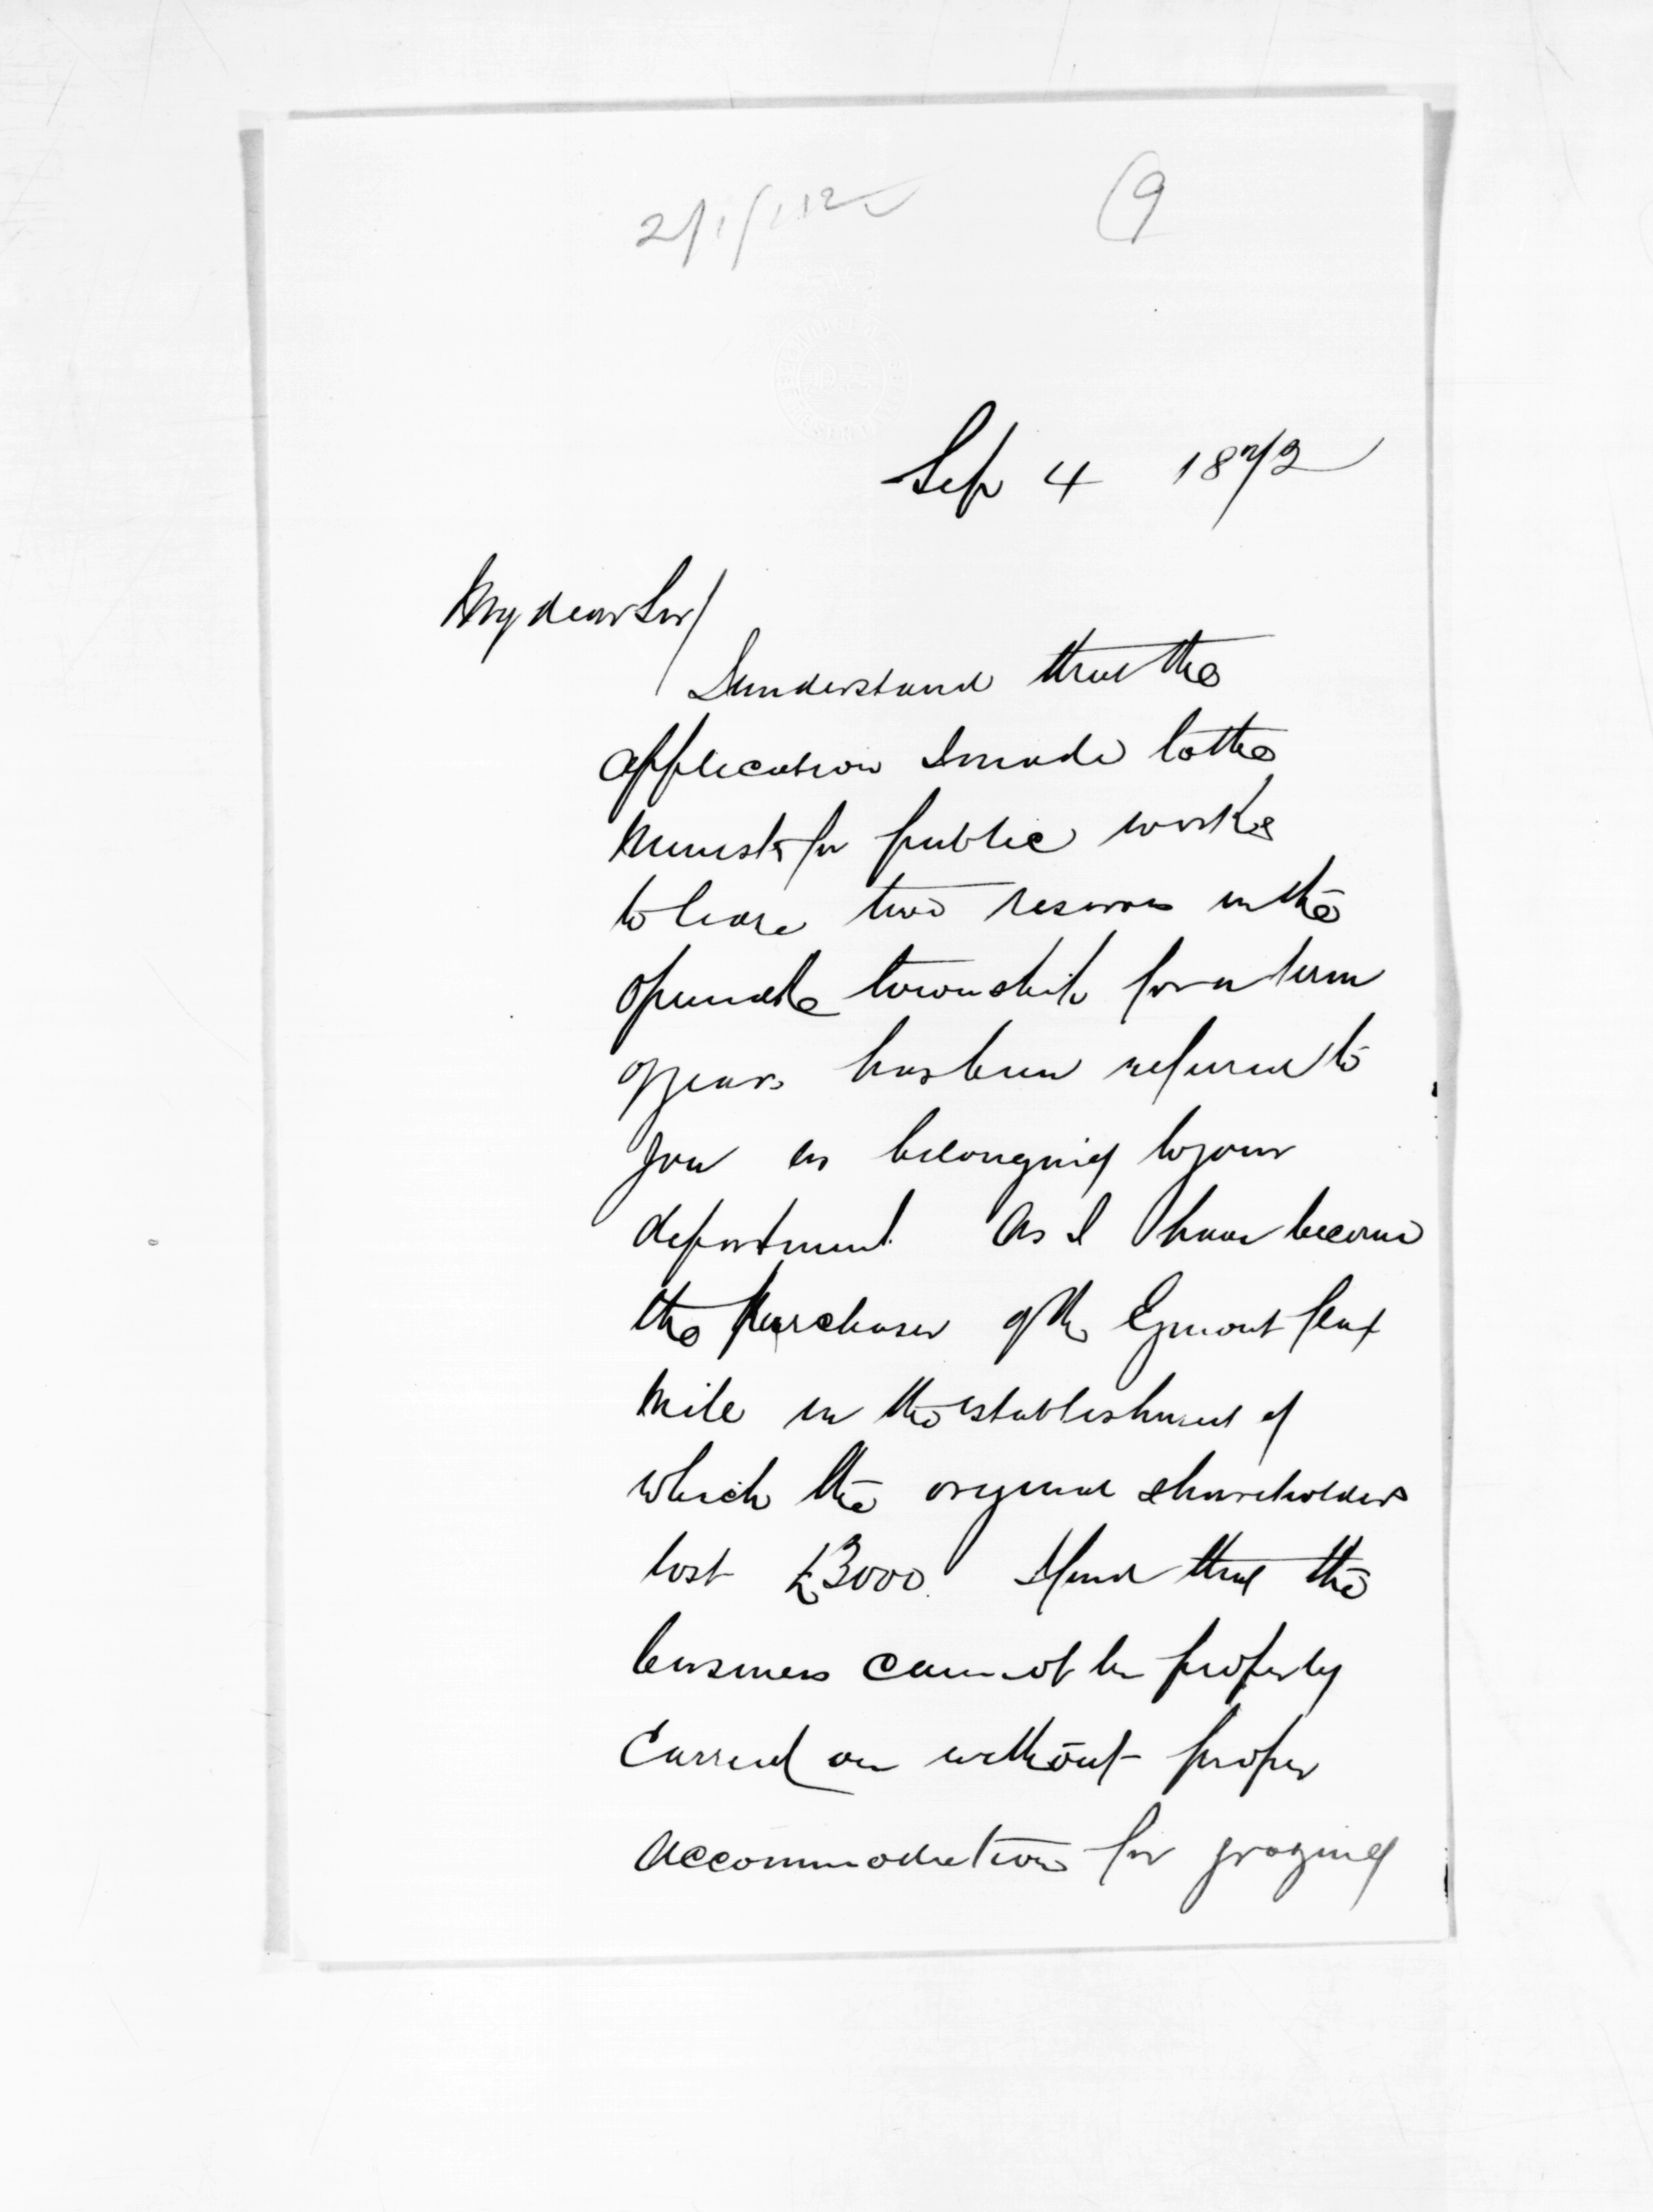 9
Sep 4 1872
My dear Sir/
I understand that the
application I made to the
Minister for public works
to lease two reserves in the
Opunake township for a term
of years has been referred to
you as belonging to your
department. As I have become
the purchaser of the Egmont flax
Mill in the establishment of
which the original shareholders
lost £3000. I find that the
business cannot be properly
Carried on without proper
accommodation for grazing